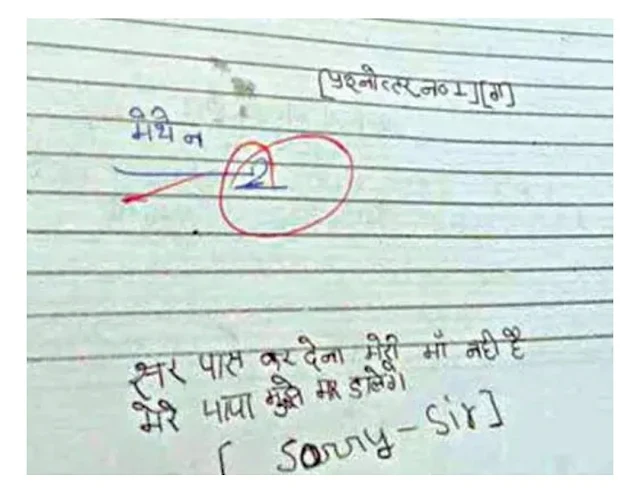 [प्रश्नोत्तर न० 1][ग]
मेथेन
2
सर पास कर देना मेरी माँ नही है
मेरे पापा मुझे मार डालेंगे
[ Sorry - Sir]